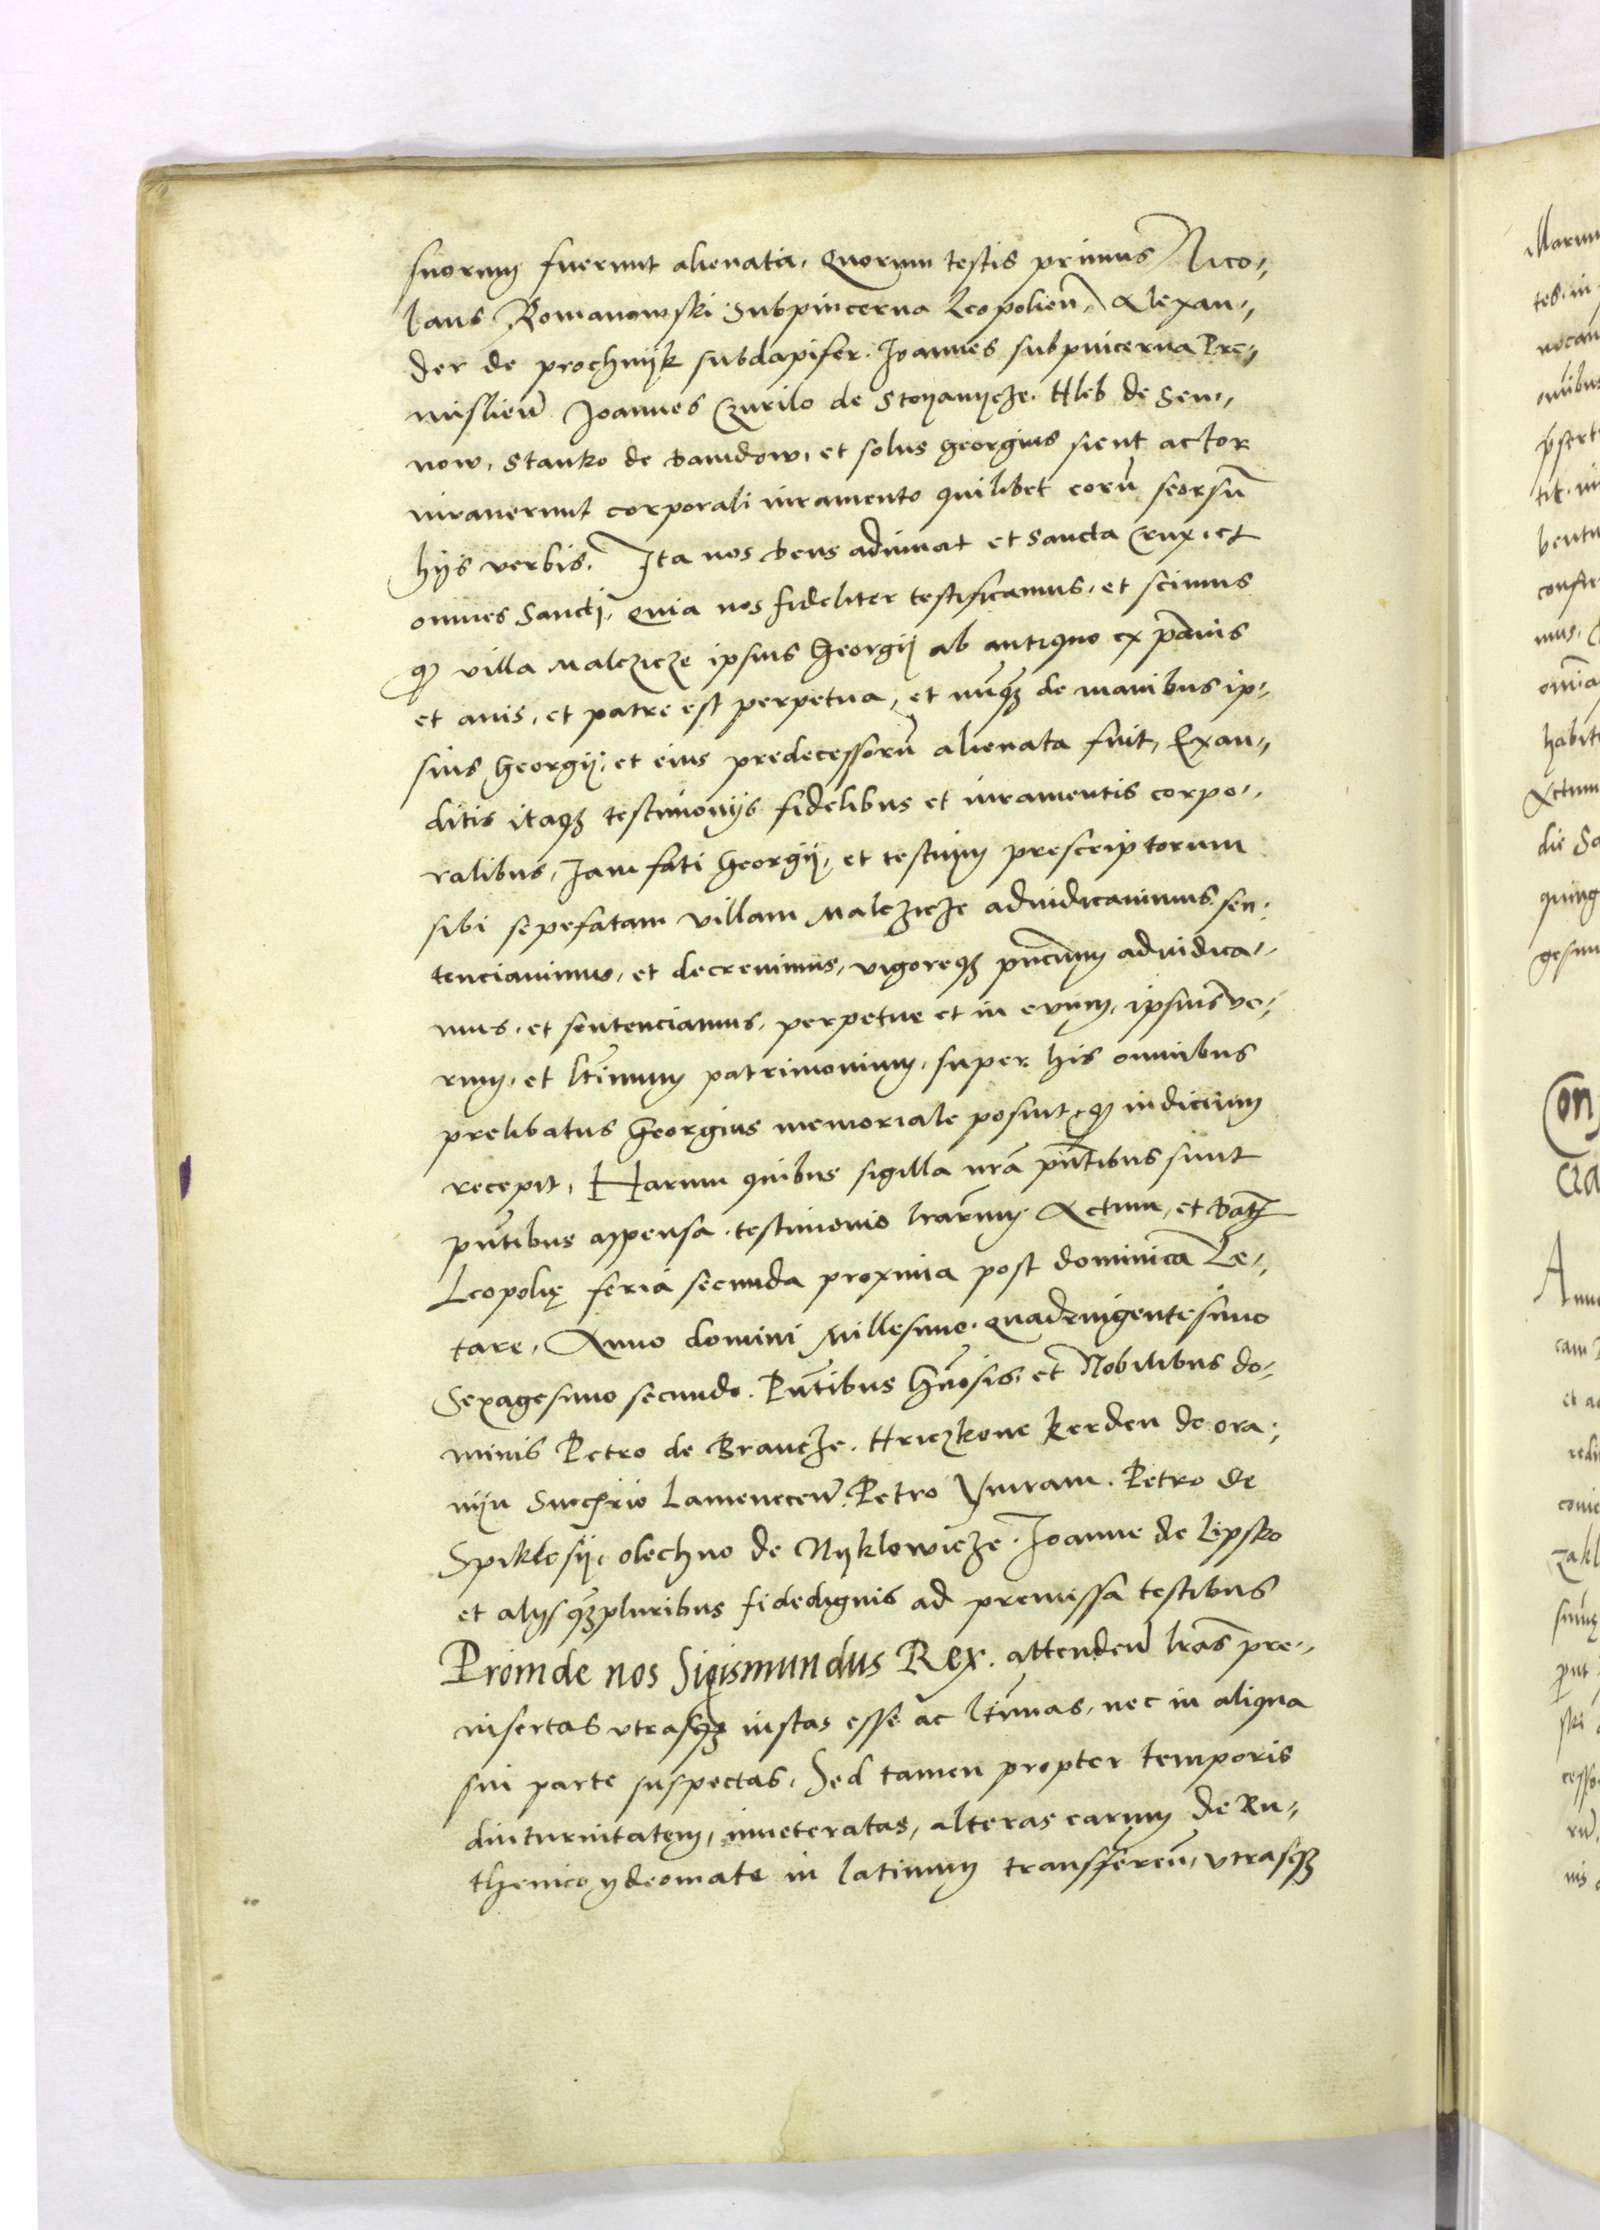 suorum fuerunt alienata, Quorum testis primus Nico-
laus Romanowski Subpincerna Leopolień, Alexan-
der de prochnijk subdapifer. Ioannes subpincerna Pre-
mislień Ioannes Czurilo de Stoyanijcze. Hleb de Sen-
now, Stanko de Dawidow, et solus georgius sicut actor
iuraverunt corporali iuramento quilibet eorū seorsū
hijs verbis. Ita nos Deus adiuvat et Sancta Crux, et
omnes Sancti, Quia nos fideliter testificamus, et scimus
qz villa Malczicze ipsius Georgij ab antiquo ex p̄avis
et avis, et patre est perpetua, et nūqz de manibus ip-
sius Georgij, et eius predecessorū alienata fuit, Exau-
ditis itaqz testimonijs fidelibus et iuramentis corpo-
ralibus, Iam fati Georgij, et testium prescriptorum
sibi sepefatam villam Malczicze adiudicavimus sen-
tenciavimus, et decrevimus, vigoreqz pn̄cium adiudica-
mus, et sentenciamus, perpetue et in evum, ipsius ve-
rum, et ltīmum patrimonium, super his omnibus
prelibatus Georgius memoriale posuit, qz iudicium
recepit, Harum quibus sigilla nrā pn̄tibus sunt
pn̄tibus appensa testimonio lrārum Actum, et Datz
Leopolię feria secunda proxima post dominicā Le-
tare, Anno domini Millesimo quadringentesimo
Sexagesimo secundo. Pn̄tibus Gn̄osis, et Nobilibus do-
minis Petro de Brancze. Hriczkone Kerden de ora-
nijn Lamenecen̄. Petro Vnram. Petro de
Spiklosij, olechno de Nijklowicze. Ioanne de Lipsko
et alijs qz pluribus fidedignis ad premissa testibus
Proinde nos Sigismundus Rex. attenden̄ lrās pre-
insertas vtrasqz iustas esse ac ltīmas, nec in aliqua
sui parte suspectas, Sed tamen propter temporis
diuturnitatem, inveteratas, alteras earum de Ru-
thenico ydeomate in latinum transfferen̄, vtrasqz